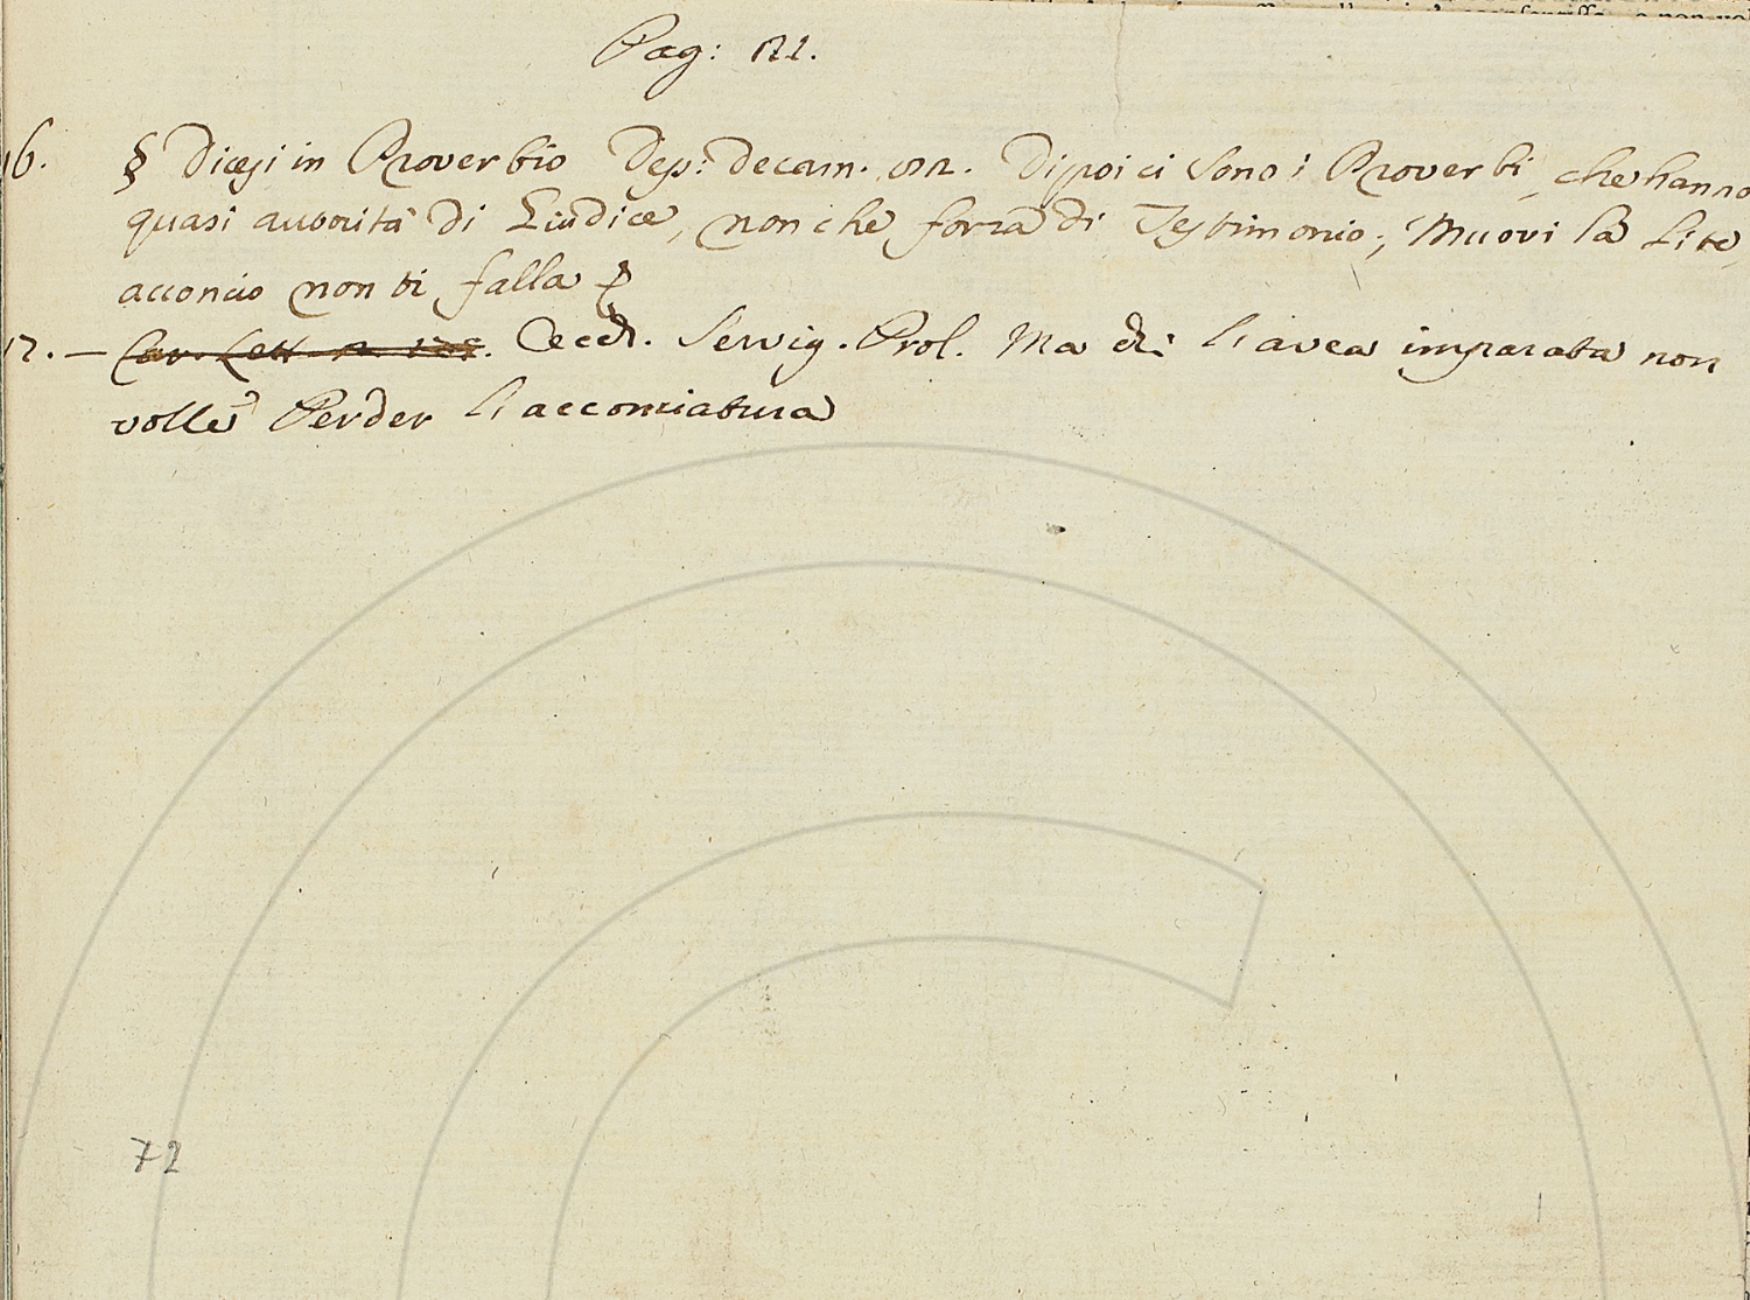 Pag: 121.
16. § Dicesi in Proverbio Dep: Decam. Dipoi ci sono i Proverbi, che hanno
quasi autorità di Giudice, non che forza di Testimonio; Muovi la lite,
acconcio non ti falla
17. — Cecch. Servig. Prol. Ma chi l'avea imparata non
volle Perder l'accomiatura
72